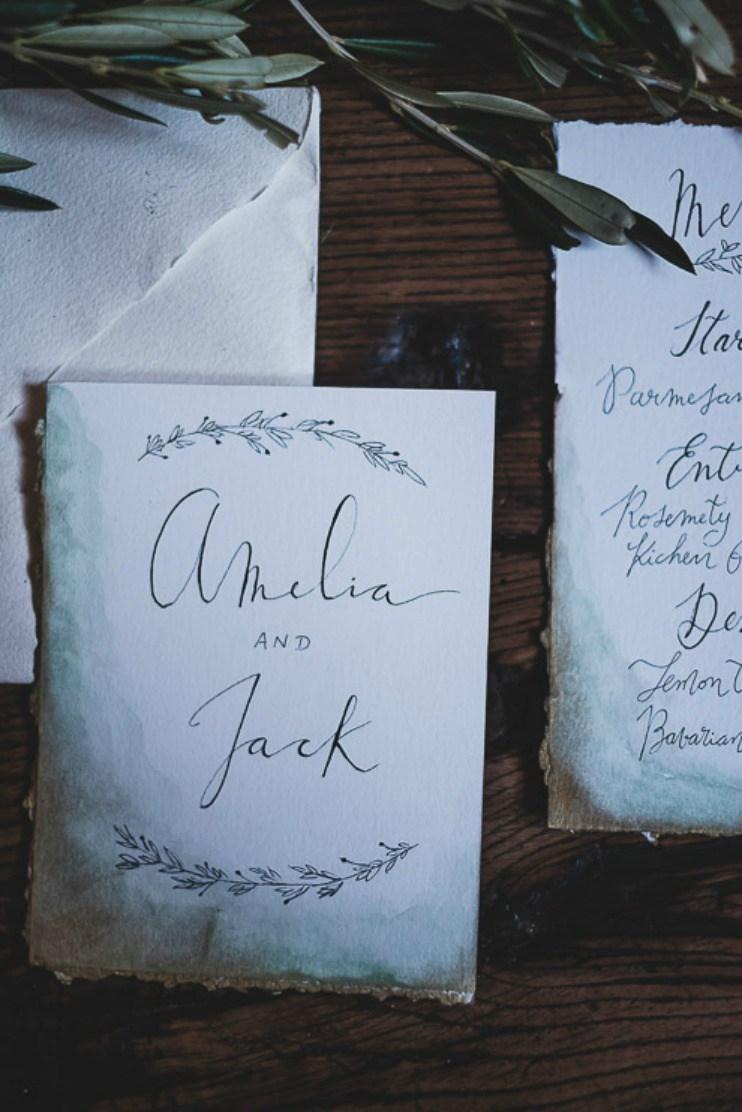 Amelia
AND
Jack
Me
Star
Parmesan
Ent
Rosemety
Kichen
De
Lemon
Bavarian